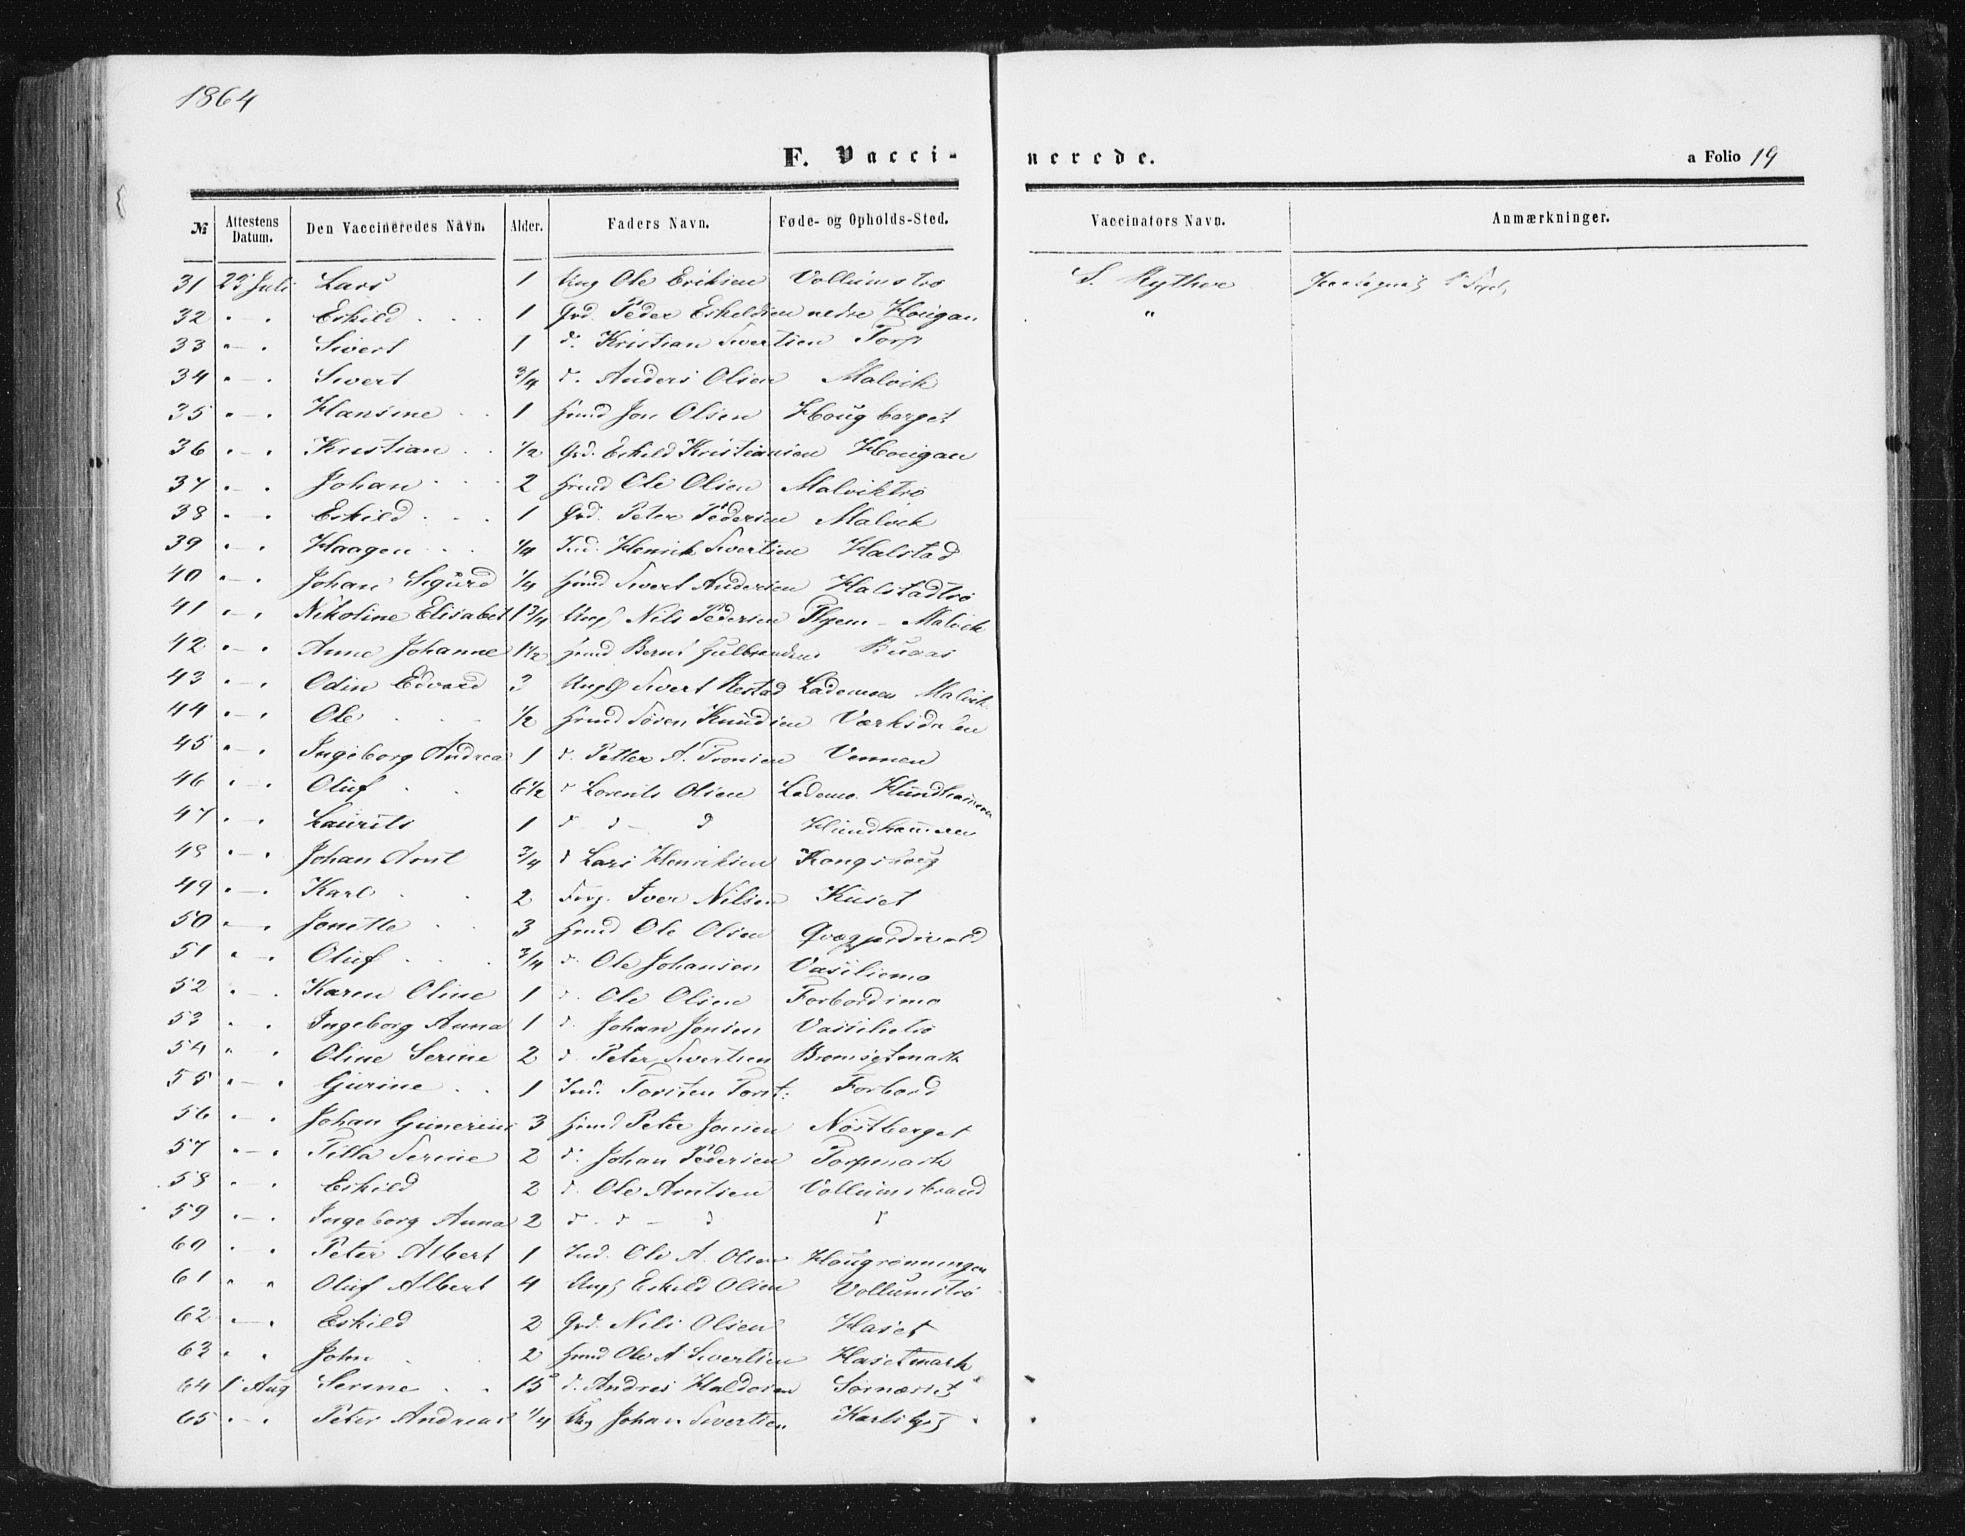 1864
F. Vacci- nerede. a Folio 19
№ Attestens Datum. Den Vaccineredes Navn. Alder. Faders Navn. Føde- og Opholds-Sted. Vaccinators Navn. Anmærkninger.
31 23 Juli Lars 1 Ole Eriksen Vollumstrø S. Rythe
32 " — " Eskild 1 Grd. Peder Eskeldsen nedre Hougan "
33 " — " Sivert 1 d. Kristian Sivertsen Torp
34 " — " Sivert 3/4 d. Anders Olsen Malvik
35 " — " Hansine 1 Hmd Jon Olsen Hougberget
36 " — " Kristian 1/2 Grd. Eskild Kristiansen Hougan
37 " — " Johan 2 Hmd Ole Olsen Malviktrø
38 " — " Eskild 1 Grd. Peter Pedersen Malvik
39 " — " Haagen 1/4 Ind. Henrik Sivertsen Halstad
40 " — " Johan Sigurd 1/4 Hmd Sivert Andersen Halstadtrø
41 " — " Nikoline Elisabet 1 3/4 Nils Pedersen Malvik
42 " — " Anne Johanne 1 1/2 Hmd Bernt Gulbrandsen Buaas
43 " — " Odin Edvard 3 Sivert Restad Lademoen Malvik
44 " — " Ole 1/2 Hmd Søren Knudsen Værksdalen
45 " — " Ingeborg Andrea 1 d. Petter A. Tronsen Vennen
46 " — " Oluf 6 1/2 d Lorents Olsen Lademo. Hundhammeren
47 " — " Laurits 1 d d — d Hundhammeren
48 " — " Johan Arnt 3/4 d Lars Henriksen Kongshoug
49 " — " Karl 2 Iver Nilsen Kuset
50 " — " Jonette 3 Hmd Ole Olsen
51 " — " Oluf 3/4 d. Ole Johansen Vasliemo
52 " — " Karen Oline 1 d. Ole Olsen Forbordsmo
53 " — " Ingeborg Anna 1 d. Johan Jonsen Vasslietrø
54 " — " Oline Serine 2 d. Peter Sivertsen Bromsetmark
55 " — " Gurine 1 Ind. Torsten Torst: Forbord
56 " — " Johan Gunerius 3 Hmd Peter Jonsen Nøstberget
57 " — " Pitla Serine 2 d. Johan Pedersen Torpmark
58 " — " Eskild 2 d. Ole Arntsen Vollumsbrand
59 " — " Ingeborg Anna 2 d. d — d d
60 " — " Peter Albert 1 Ind. Ole A. Olsen Hougrønningen
61 " " Oluf Albert 4 Eskild Olsen Vollumstrø
62 " — " Eskild 2 Grd. Nils Olsen Haset
63 " " John 2 Hmd Ole A Sivertsen Hasetmark
64 1 Aug Serine 15 d. Andres Haldorsen Sørnæsset
65 " — " Peter Andreas 1/4 Johan Sivertsen